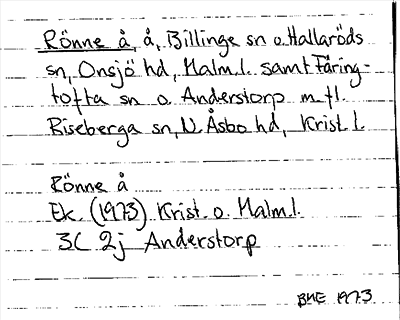 Rönne å, å, Billinge sn o. Hallaröds
sn, Onsjö hd, Malm.l. samt Färing-
tofta sn o. Anderstorp m fl.
Riseberga sn, N Åsbo hd, Krist l.
Rönne å
Ek. (1973) Krist. o. Malm.l.
3C 2j Anderstorp
BHE 1973